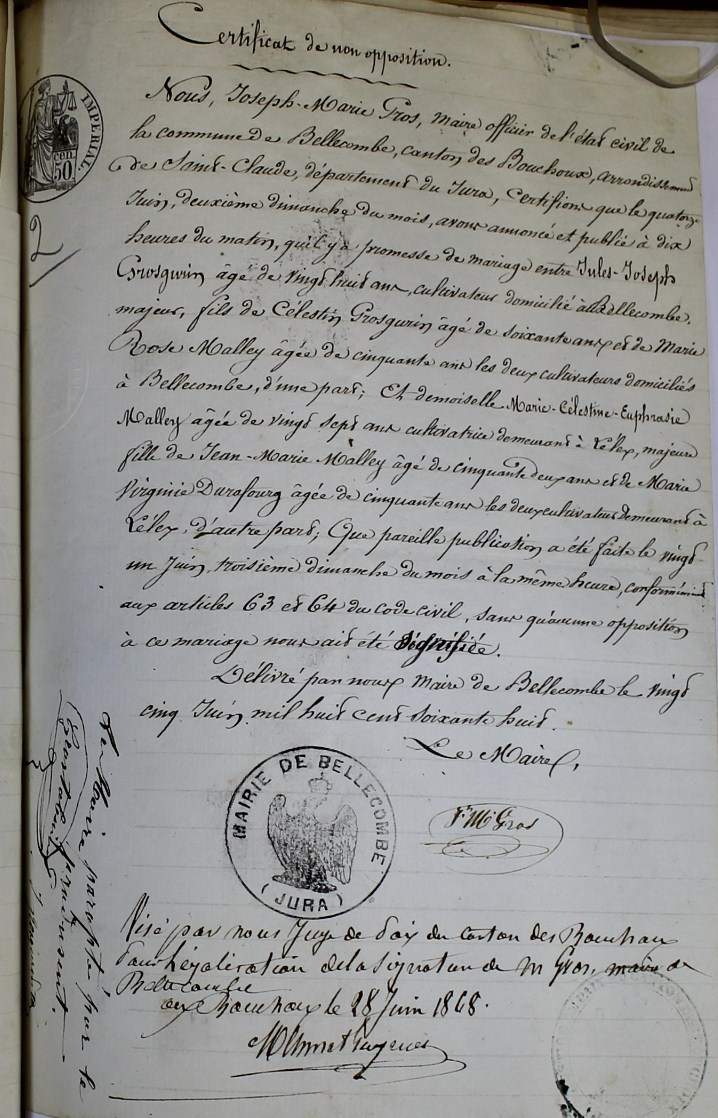 Certificat de non opposition.
IMPERIAL.
50
cen
2
Nous, Joseph-Marie Gros, maire officier de l'état civil de
la commune de Bellecombe, canton des Bouchoux, arrondissement
de Saint-Claude, département du Jura, Certifions que le quatorze
Juin, deuxième dimanche du mois, avons annoncé et publié à dix
heures du matin, qu'il y a promesse de mariage entre Jules-Joseph
Grosgurin âgé de vingt huit ans, cultivateur domicilié à Bellecombe,
majeur, fils de Célestin Grosgurin âgé de soixante ans et de Marie
Rose Malley âgée de cinquante ans les deux cultivateurs domiciliés
à Bellecombe, d'une part; Et demoiselle Marie-Célestine-Euphrasie
Malley âgée de vingt sept ans cultivatrice demeurant à Lélex, majeure
fille de Jean-Marie Malley âgé de cinquante deux ans et de Marie
Virginie Durafourg âgée de cinquante ans les deux cultivateurs demeurant à
Lélex, d'autre part; Que pareille publication a été faite le vingt
un Juin, troisième dimanche du mois à la même heure, conformément
aux articles 63 et 64 du code civil, sans qu'aucune opposition
à ce mariage nous ait été signifiée.
Délivré par nous Maire de Bellecombe le vingt
cinq Juin mil huit cent soixante huit.
Le Maire,
MAIRIE DE BELLECOMBE
(JURA)
J. M. Gros
Visé par nous Juge de paix du canton des Bouchoux
pour légalisation de la signature de M Gros, maire de
Bellecombe
aux Bouchoux le 28 Juin 1868.
Le Maire paraphé par le